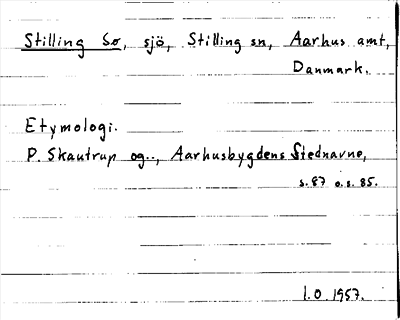 Stilling Sø, sjö, Stilling sn, Aarhus amt,
Danmark.
Etymologi.
P. Skautrup og.., Aarhusbygdens Stednavne,
s. 87 o. s. 85.
I.O. 1957.